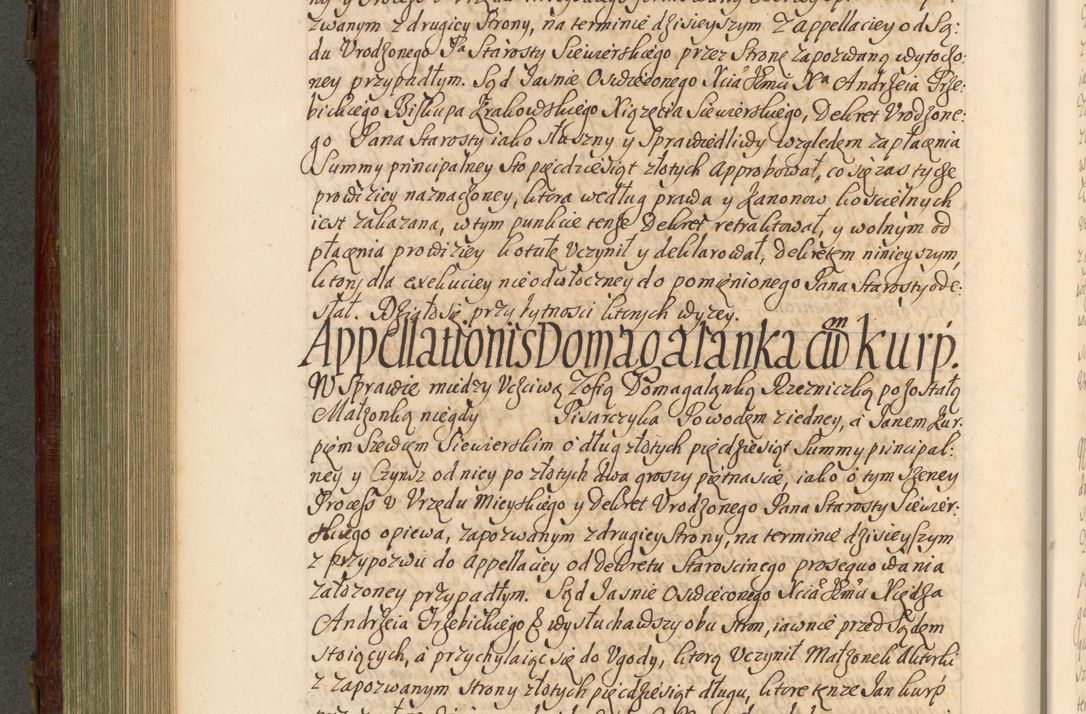 zwanym z drugiey strony, na terminie dzisieyszym z Appellaciey od Są:
du Vrodzonego Pa Starosty Siewierskiego przez Stronę zapozwaną wytoczo:
ney przypadłym. Sąd Iasnie Oswieconego Xcia JEmci Xa Andrzeia Trze:
bickiego Biskupa Krakowskiego Xiążęcia Siewierskiego, Dekret Vrodzone:
go Pana Starosty iako słuszny y Sprawiedliwy względem zapłacenia
Summy principalney Sto pięcdziesiąt złotych Approbował, co się zas tycze
prowiziey naznaczoney, ktora według prawa y Kanonow koscielnych
iest zakazana, w tym punkcie tenze Dekret retraktował, y wolnym od
płacenia prowiziey kotulę Vczynił y deklarował, dekretem ninieyszym,
ktory dla exekuciey nieodwłoczney do pomienionego Pana Starosty ode:
słał. Działo się przy bytnosci ktorych wyzey.
Appellationis Domagalanka cum kurp.
W Sprawie miedzy Vcziwą Zofią Domagalanką Rzezniczką pozostałą
Małzonką niegdy Pisarczyka Powodem z iedney, a Ianem Kur:
piem Szewcem Siewierskim o dług złotych pięcdziesiąt Summy principal:
ney y Czynsz od niey po złotych dwa groszy piętnascie, iako o tym szerzey
Process v Vrzędu Mieyskiego y dekret Vrodzonego Pana Starosty Siewier:
skiego opiewa, zapozwanym z drugiey strony, na terminie dzisieyszym
z przypozwu do Appellaciey od dekretu Staroscinego prosequowania
załozoney przypadłym. Sąd Iasnie Oswieconego Xcia JEmci Xiędza
Andrzeia Trzebickiego & wysłuchawszy obu stron, iawnie przed Sądem
stoiących, a przychylaiąc się do Vgody, ktorą Vczynił Małzonek Aktorki
z zapozwanym strony złotych pięcdziesiąt długu, ktore tenze Ian kurp